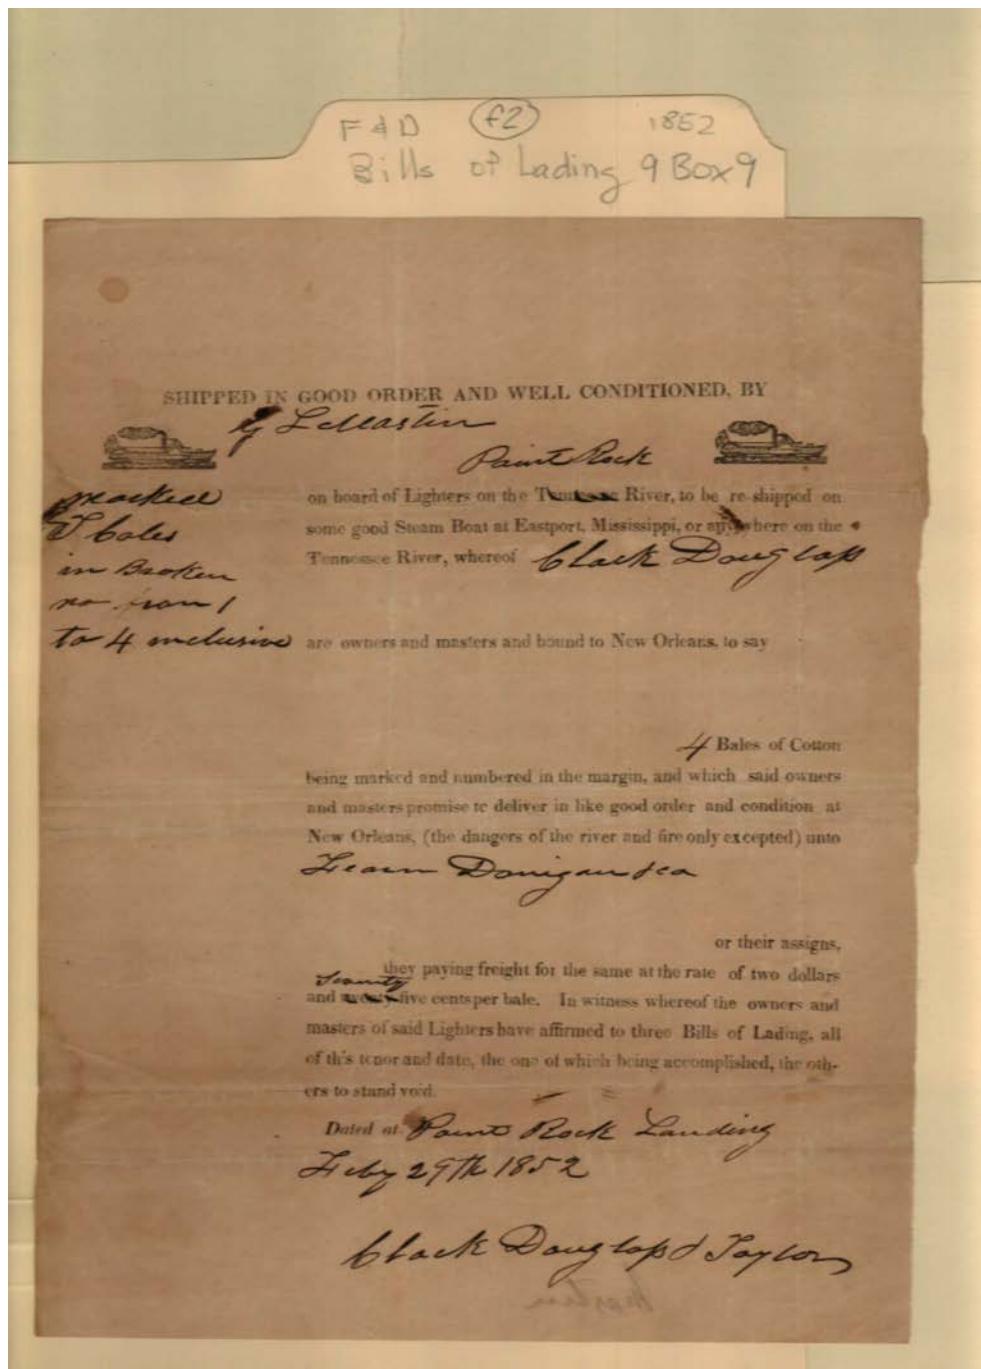 F & D f2 1852
Bills of Lading 9 Box 9
SHIPPED IN GOOD ORDER AND WELL CONDITIONED, BY
Paint Rock
marked
on board of Lighters on the Tennessee River, to be re-shipped on
some good Steam Boat at Eastport, Mississippi, or anywhere on the
in Broken
Tennessee River, whereof Clack Douglass
no from 1
to 4 inclusive
are owners and masters and bound to New Orleans, to say
4 Bales of Cotton
being marked and numbered in the margin, and which said owners
and masters promise to deliver in like good order and condition at
New Orleans, (the dangers of the river and fire only excepted) unto
Fearn Donigan & co
or their assigns,
they paying freight for the same at the rate of two dollars
and twenty-five cents per bale. In witness whereof the owners and
masters of said Lighters have affirmed to three Bills of Lading, all
of this tenor and date, the one of which being accomplished, the oth-
ers to stand void.
Dated at Paint Rock Landing
Feby 29th 1852
Clack Douglass & Taylor